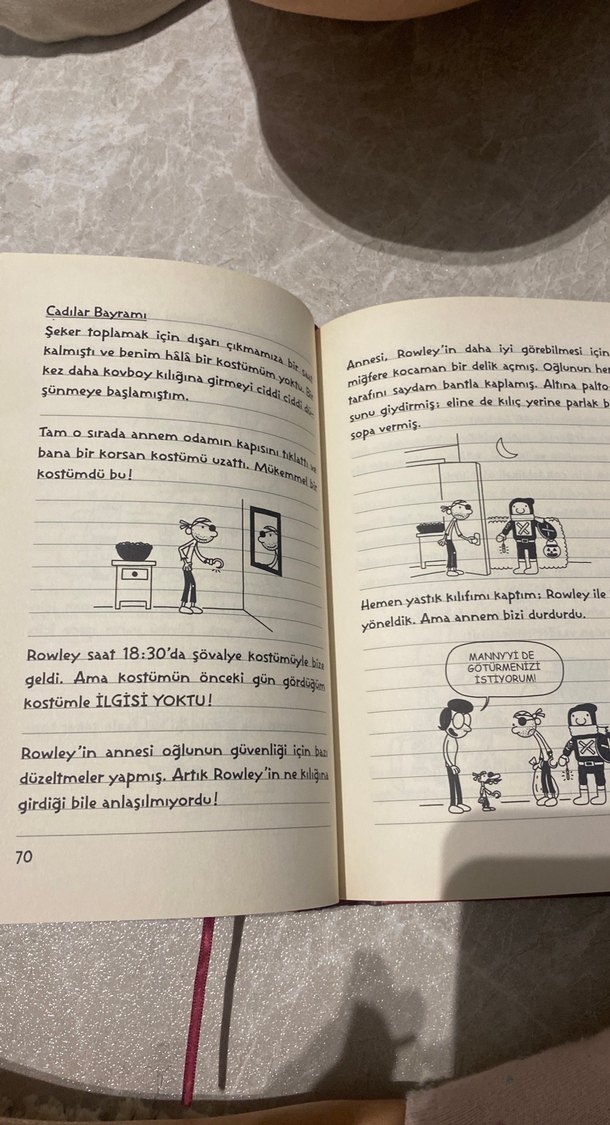 Cadılar Bayramı
Şeker toplamak için dışarı çıkmamıza bir saat
kalmıştı ve benim hâlâ bir kostümüm yoktu. Bir
kez daha kovboy kılığına girmeyi ciddi ciddi dü-
şünmeye başlamıştım.
Tam o sırada annem odamın kapısını tıklattı ve
bana bir korsan kostümü uzattı. Mükemmel bir
kostümdü bu!
Rowley saat 18:30'da şövalye kostümüyle bize
geldi. Ama kostümün önceki gün gördüğüm
kostümle İLGİSİ YOKTU!
Rowley'in annesi oğlunun güvenliği için bazı
düzeltmeler yapmış. Artık Rowley'in ne kılığına
girdiği bile anlaşılmıyordu!
70
Annesi, Rowley'in daha iyi görebilmesi için
miğfere kocaman bir delik açmış. Oğlunun her
tarafını saydam bantla kaplamış. Altına palto
sunu giydirmiş; eline de kılıç yerine parlak
sopa vermiş.
Hemen yastık kılıfımı kaptım; Rowley ile
yöneldik. Ama annem bizi durdurdu.
MANNY'Yİ DE
GÖTÜRMENİZİ
İSTİYORUM!